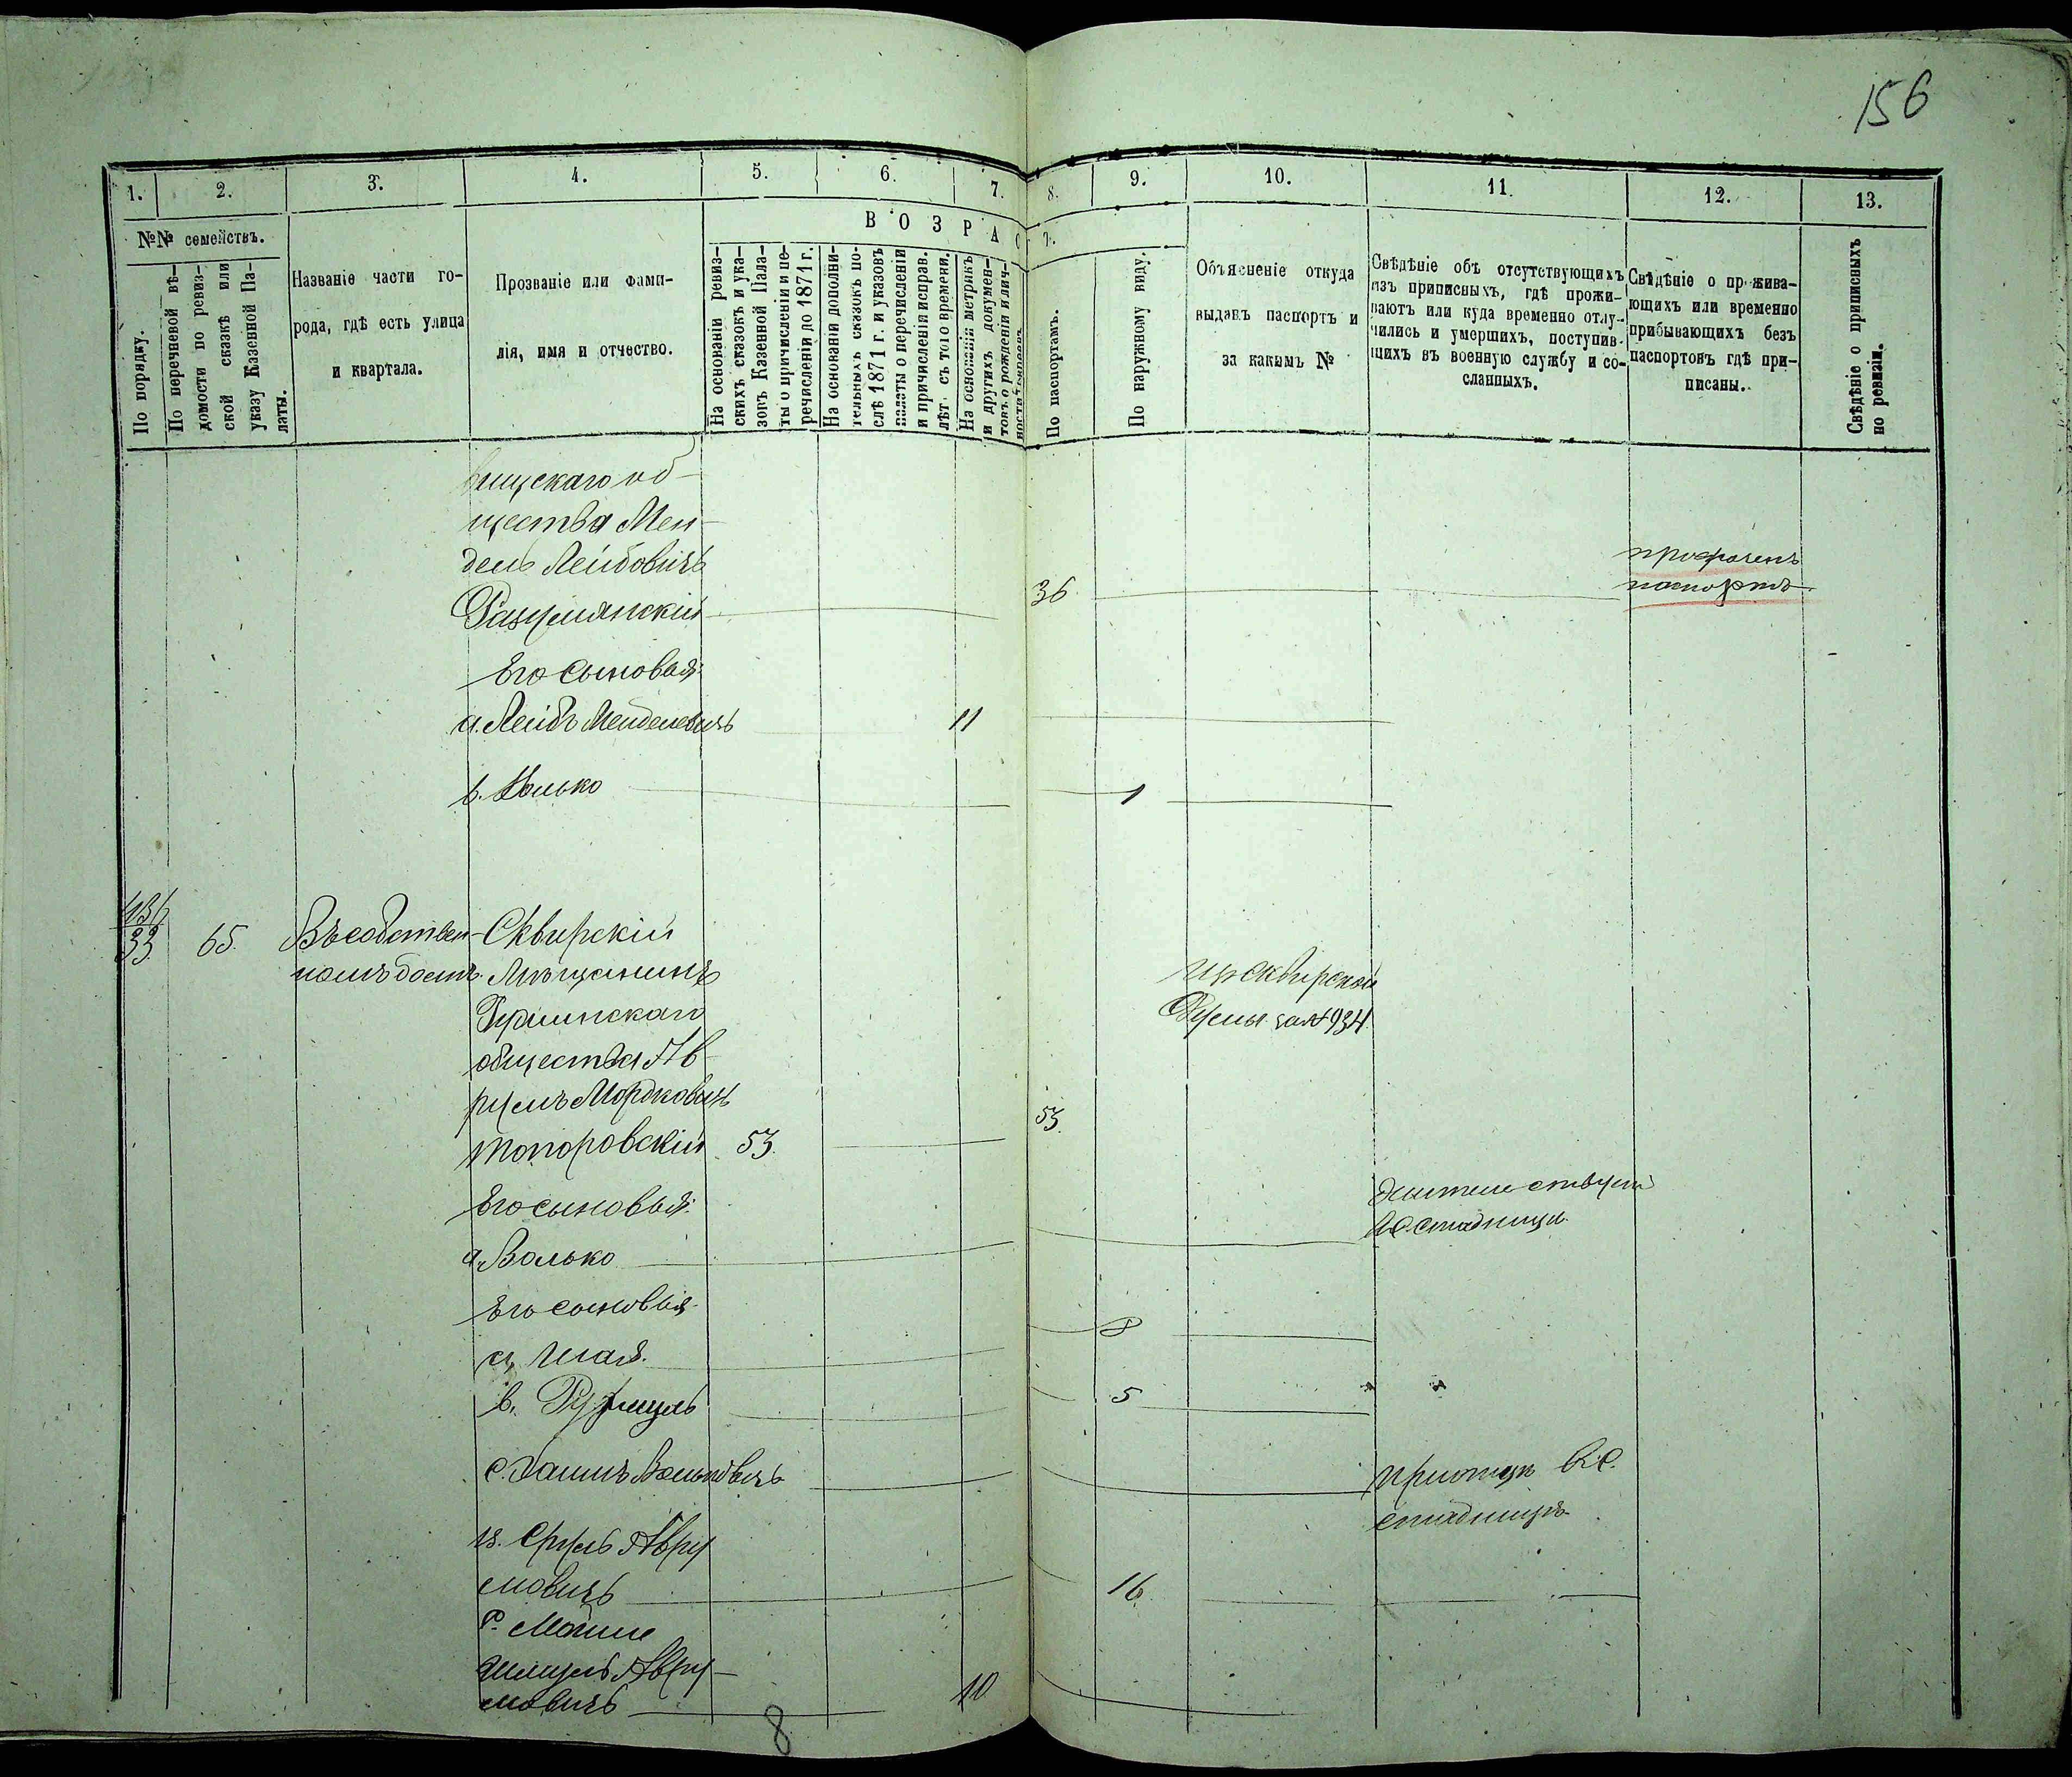 156
1.
2.
3.
4.
5.
6.
7.
8.
9.
10.
11.
12.
13.
№№ семействъ.
По порядку.
По перечневой вѣ-
домости по ревиз-
ской сказкѣ или
указу Казенной Па-
латы.
Названіе части го-
рода, гдѣ есть улица
и квартала.
Прозваніе или фами-
лія, имя и отчество.
ВОЗРАСТ.
На основаніи ревиз-
скихъ сказокъ и ука-
зовъ Казенной Пала-
ты о причисленіи и пе-
речисленіи до 1871 г.
На основаніи дополни-
тельныхъ сказокъ по-
слѣ 1871 г. и указовъ
палаты о перечисленіи
и причисленія исправ.
лѣт. съ того времени.
На основаніи метрикъ
и другихъ докумен-
товъ о рожденіи и лич-
ности
По паспортамъ.
По наружному виду.
Объясненіе откуда
выданъ паспортъ и
за какимъ №
Свѣдѣніе объ отсутствующихъ
изъ приписныхъ, гдѣ прожи-
ваютъ или куда временно отлу-
чились и умершихъ, поступив-
щихъ въ военную службу и со-
сланныхъ.
Свѣдѣніе о прожива-
ющихъ или временно
прибывающихъ безъ
паспортовъ гдѣ при-
писаны.
Свѣдѣніе о приписныхъ
по ревизіи.
об-
щества Мен-
дель Лейбовичъ
36
паспортъ
Его сыновья:
а. Лейбъ Менделевичъ 11
в. Волько 1
33 65. Въ собствен-
номъ домѣ.
Сквирскій
Мѣщанинъ
общества Ав-
румъ Мордковичъ
Топоровскій 53. 53.
Изъ Сквирской
Думы за № 934.
Его сыновья:
а. Волько
жительствуетъ
в с. Стадница.
Его сыновья
а, Шая. 8
в. 5 " "
с. Хаимъ Вольковичъ
в. с.
Стадницѣ
в. Сруль Авру
мовичъ 16
с. Мошко
Шмуль Авру-
мовичъ 10
8